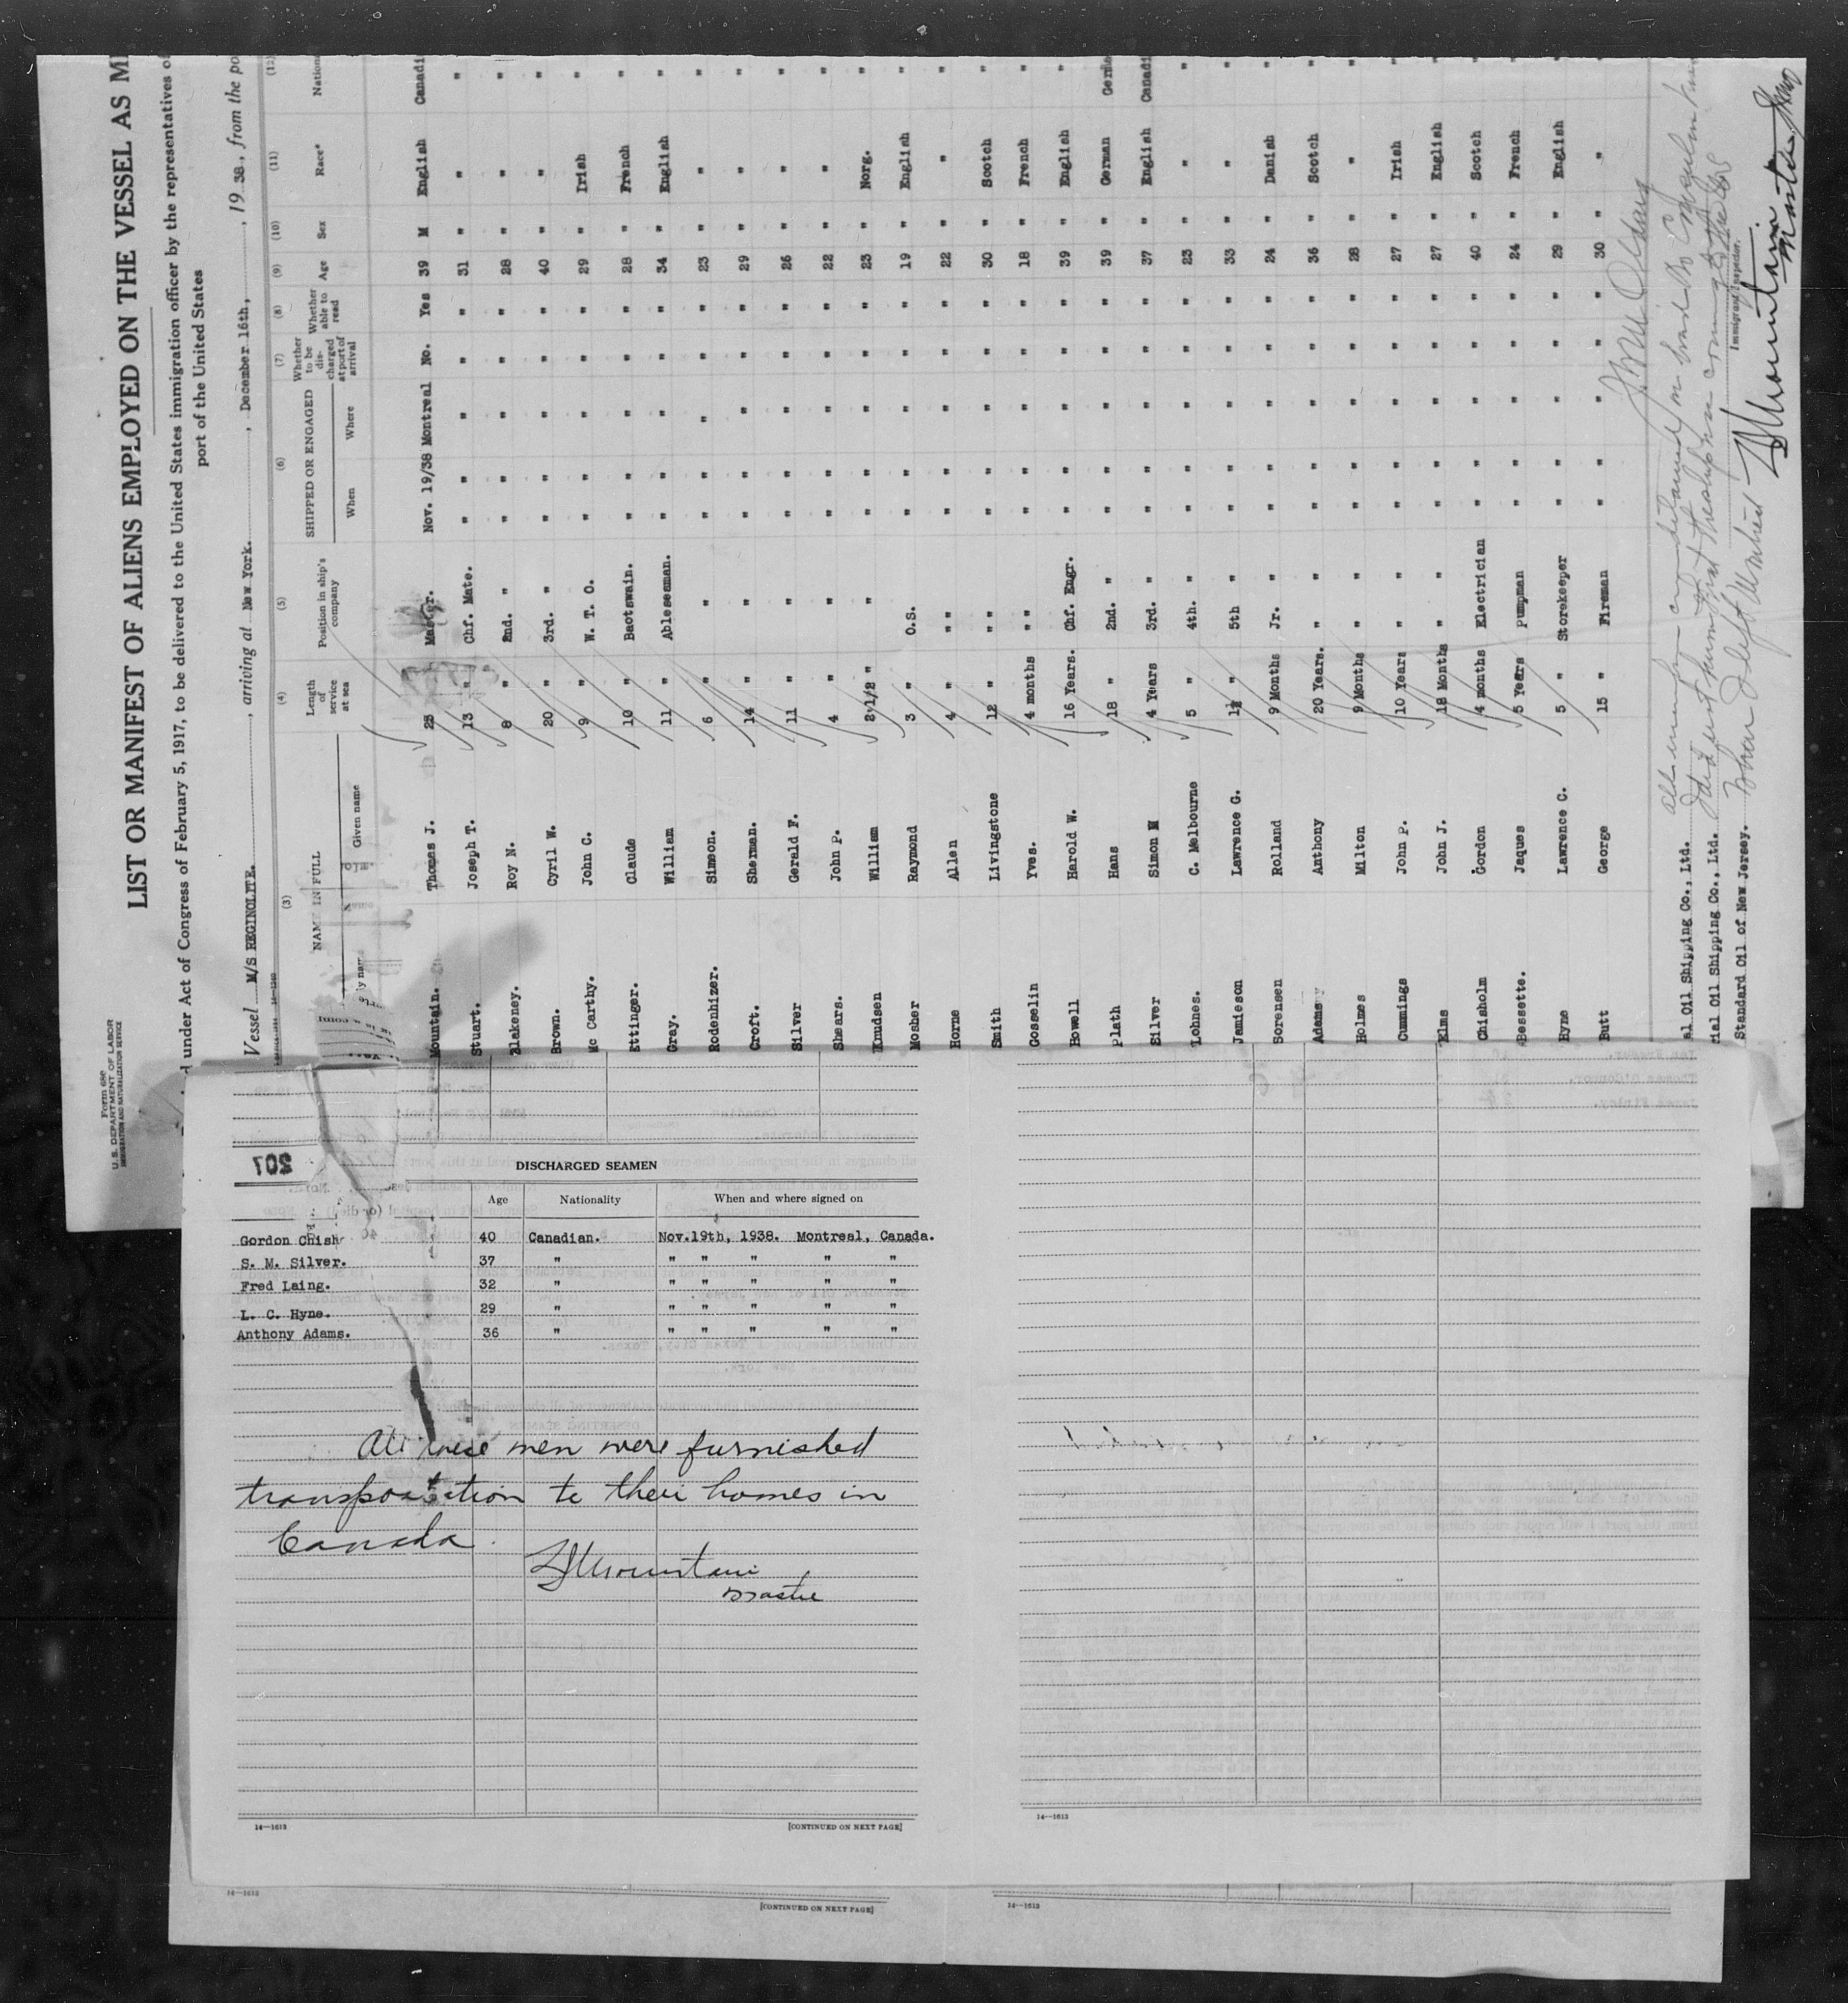 LIST OR MANIFEST OF ALIENS EMPLOYED ON THE VESSEL AS
under Act of Congress of February 5, 1917, to be delivered to the United States immigration officer by the representatives
port of the United States
Form 680
U. S. DEPARTMENT OF LABOR
IMMIGRATION AND NATURALIZATION SERVICE
Vessel M/S REGINOLITE. , arriving at New York. , December 16th, , 19 38. , from the po
(3) (4) (5) (6) (7) (8) (9) (10) (11) (12)
NAME IN FULL Given name Length of service at sea Position in ship's company SHIPPED OR ENGAGED When Where Whether to be discharged at port of arrival Whether able to read Age Sex Race* Nationa
Mountain. Thomas J. 25 Master. Nov. 19/38 Montreal No. Yes 39 M English Canadi
Stuart. Joseph T. 13 " Chf. Mate. " " " " " 31 " " "
Blakeney. Roy N. 8 " 2nd. " " " " " " 28 " " "
Brown. Cyril W. 20 " 3rd. " " " " " " 40 " " "
Mc Carthy. John C. 9 " W. T. O. " " " " " 29 " Irish "
Ettinger. Claude 10 " Baotswain. " " " " " 28 " French "
Gray. William 11 " Ableseaman. " " " " " 34 " English "
Rodenhizer. Simeon. 6 " " " " " " " 23 " " "
Croft. Sherman. 14 " " " " " " " 29 " " "
Silver Gerald F. 11 " " " " " " " 26 " " "
Shears. John P. 4 " " " " " " " 22 " " "
Knudsen William 2 1/2 " " " " " " " 23 " Norg. "
Mosher Raymond 3 " O.S. " " " " " 19 " English "
Horne Allen 4 " " " " " " " " 22 " " "
Smith Livingstone 12 " " " " " " " " 30 " Scotch "
Gosselin Yves. 4 months " " " " " " " 18 " French "
Howell Harold W. 16 Years. Chf. Engr. " " " " " 39 " English "
Plath Hans 18 " 2nd. " " " " " " 39 " German Germa
Silver Simon M 4 Years 3rd. " " " " " " 37 " English Canadi
Lohnes. C. Melbourne 5 " 4th. " " " " " " 23 " " "
Jamieson Lawrence G. 1½ " 5th " " " " " " 33 " " "
Sorensen Rolland 9 Months Jr. " " " " " " 24 " Danish "
Adams Anthony 20 Years. " " " " " " 36 " Scotch "
Holmes Milton 9 Months " " " " " " 28 " " "
Cummings John P. 10 Years " " " " " " 27 " Irish "
Elms John J. 18 Months " " " " " " 27 " English "
Chisholm Gordon 4 months Electrician " " " " " 40 " Scotch "
Bessette. Jaques 5 Years Pumpman " " " " " 24 " French "
Hyne Lawrence C. 5 " Storekeeper " " " " " 29 " English "
Butt George 15 " Fireman " " " " " 30 " " "
al Oil Shipping Co., Ltd.
rial Oil Shipping Co., Ltd.
Standard Oil of New Jersey.
Immigrant Inspector.
Mountain
Master
207
DISCHARGED SEAMEN
Age Nationality When and where signed on
Gordon Chish 40 Canadian. Nov.19th, 1938. Montreal, Canada.
S. M. Silver. 37 " " " " " "
Fred Laing. 32 " " " " " "
L. C. Hyne. 29 " " " " " "
Anthony Adams. 36 " " " " " "
All these men were furnished
transportation to their homes in
Canada.
TJMountain
Master
14—1613 [CONTINUED ON NEXT PAGE] 14—1613
14—1613 [CONTINUED ON NEXT PAGE] 14—1613